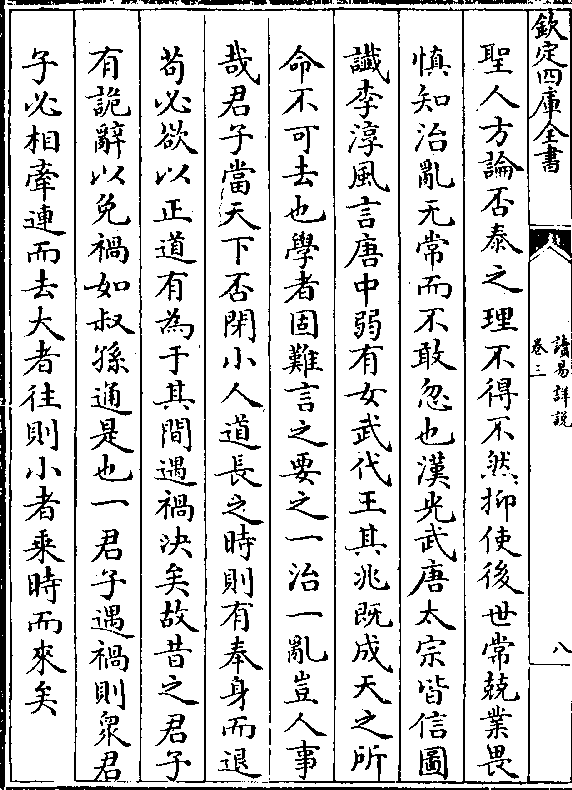 欽定四庫全書
讀易詳說
卷三
八
聖人方論否泰之理不得不然抑使後世常兢業畏
慎知治亂无常而不敢忽也漢光武唐太宗皆信圖
讖李淳風言唐中弱有女武代王其兆既成天之所
命不可去也學者固難言之要之一治一亂豈人事
哉君子當天下否閉小人道長之時則有奉身而退
苟必欲以正道有為于其間遇禍決矣故昔之君子
有詭辭以免禍如叔孫通是也一君子遇禍則衆君
子必相牽連而去大者往則小者乘時而來矣